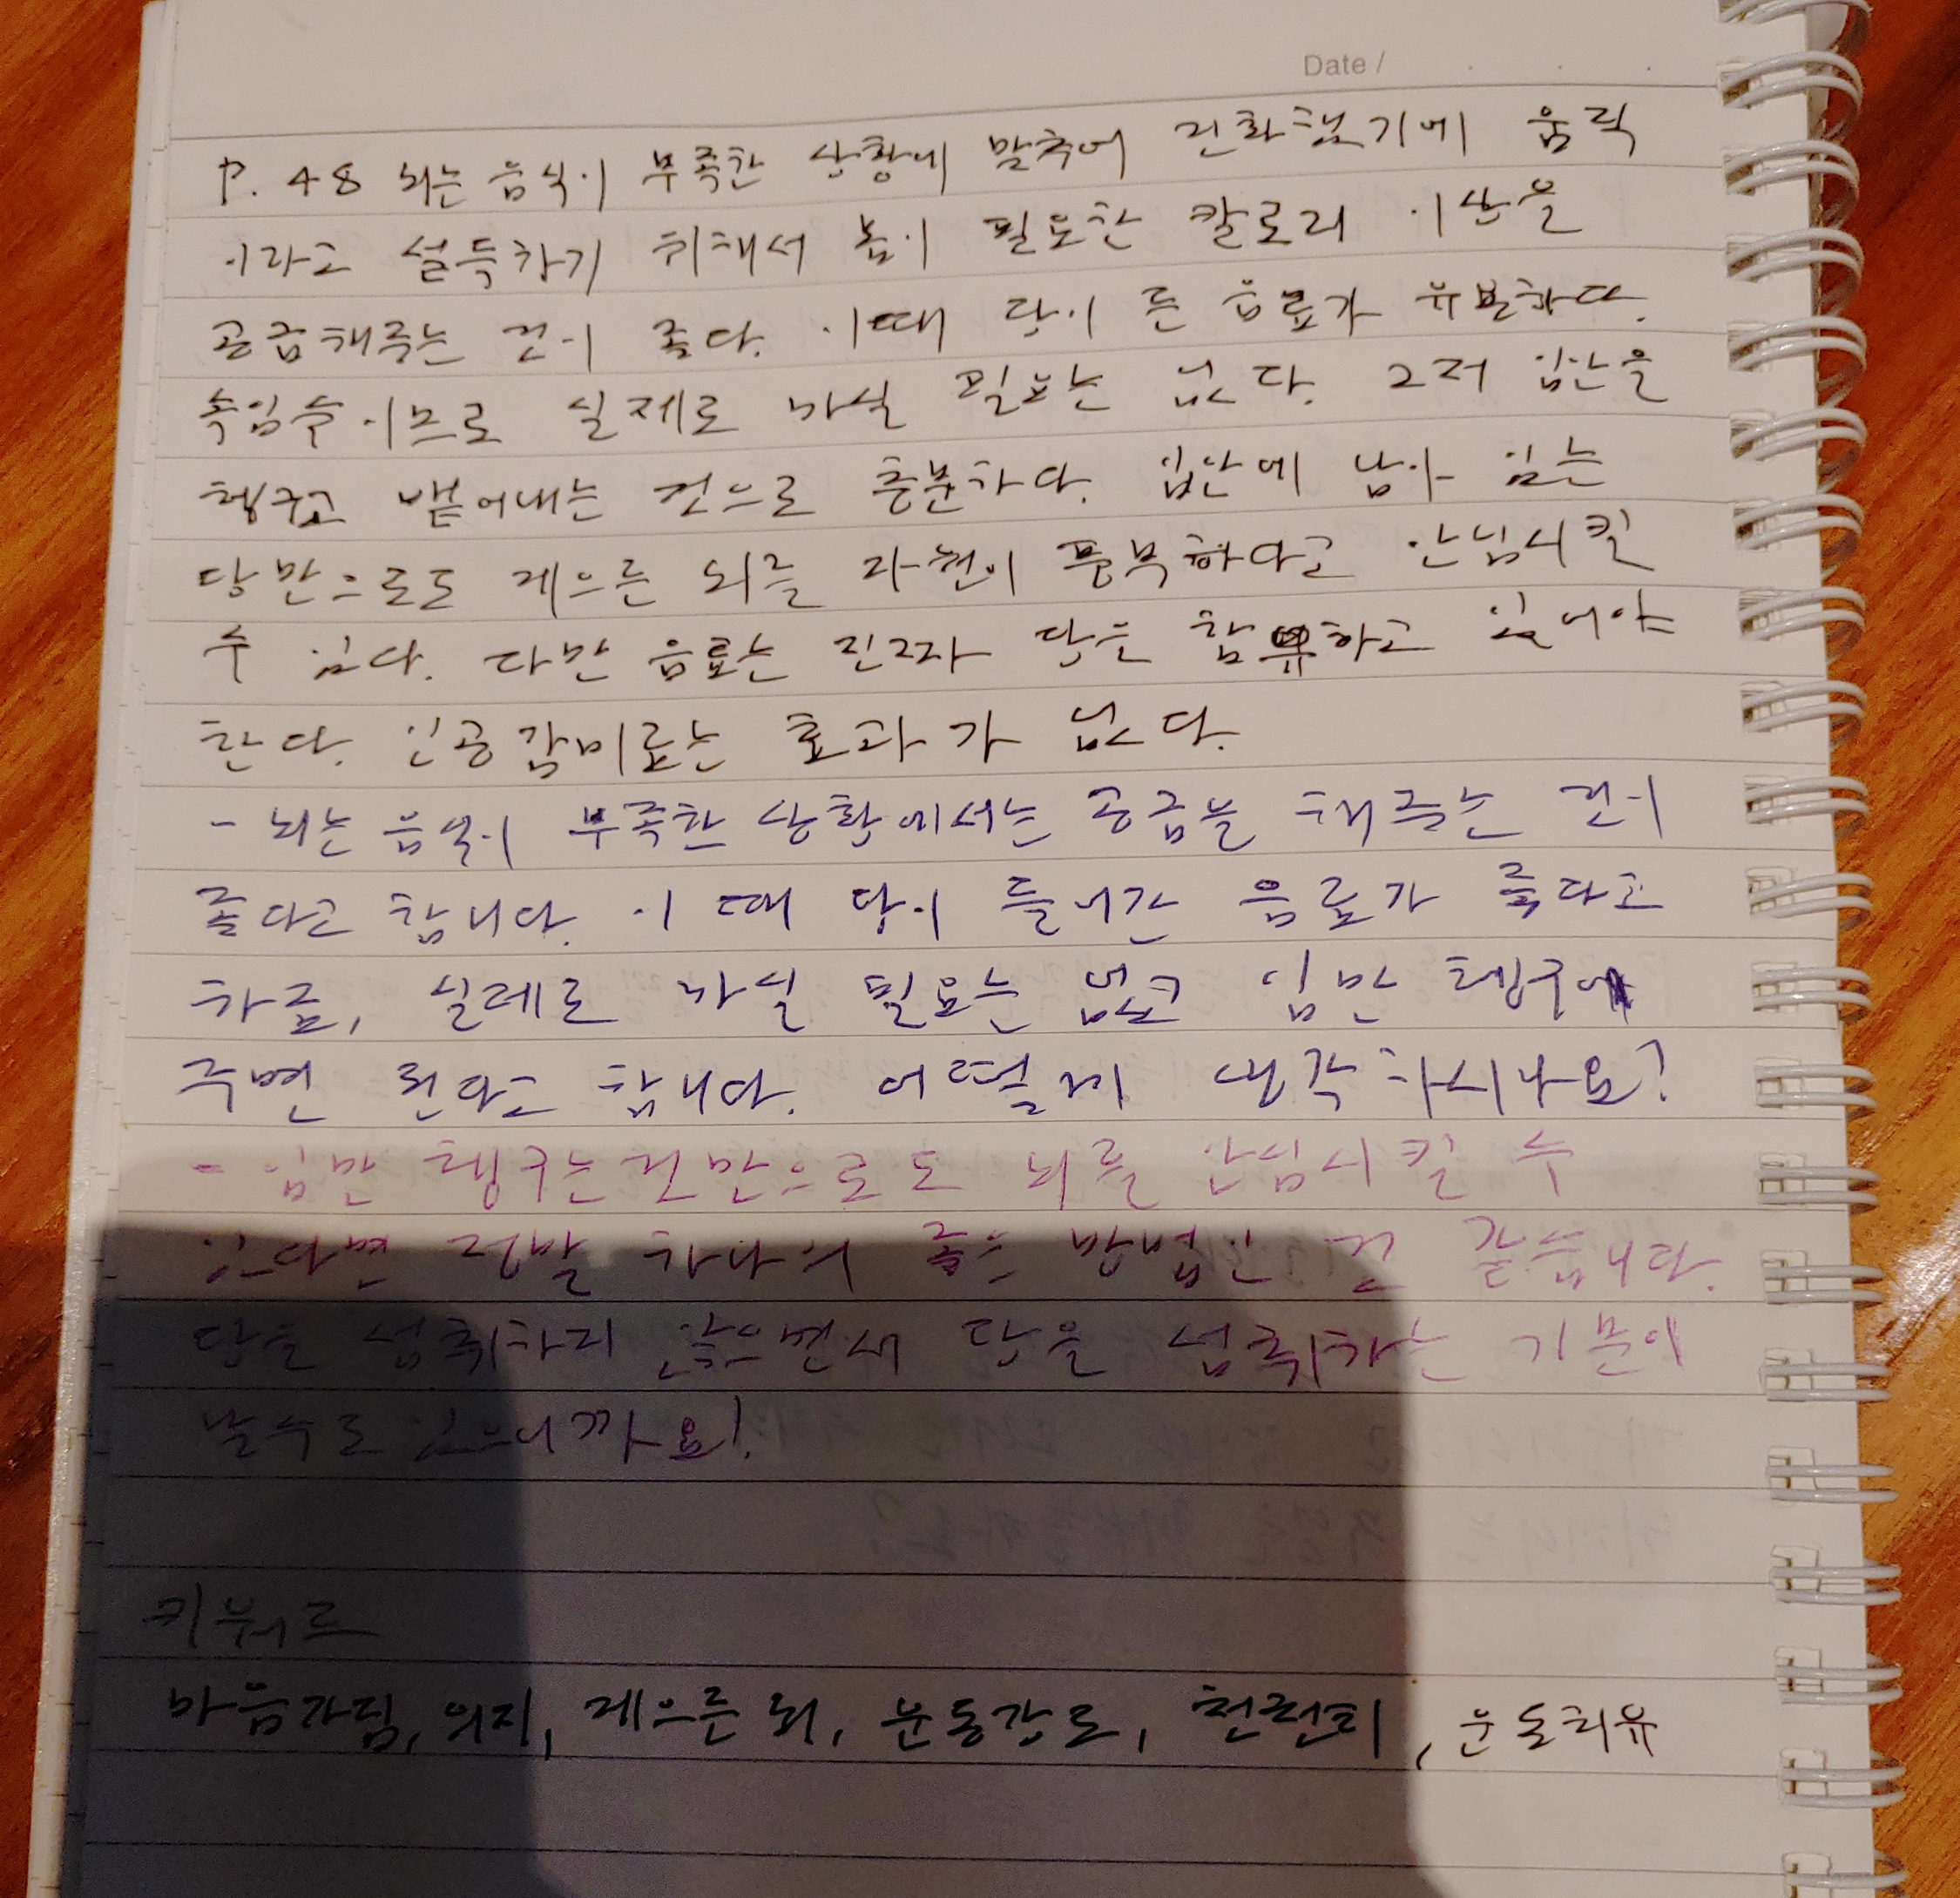 Date /
P. 48 뇌는 음식이 부족한 상황에 맞추어 진화했기에 움직
이라고 설득하기 위해서 몸이 필요한 칼로리 이상을
공급해주는 것이 좋다. 이때 당이 든 음료가 유용하다.
속임수이므로 실제로 마실 필요는 없다. 그저 입안을
헹구고 뱉어내는 것으로 충분하다. 입안에 남아 있는
당만으로도 게으른 뇌를 자원이 풍부하다고 안심시킬
수 있다. 다만 음료는 진짜 당을 함유하고 있어야
한다. 인공감미료는 효과가 없다.
- 뇌는 음식이 부족한 상황에서는 공급을 해주는 것이
좋다고 합니다. 이 때 당이 들어간 음료가 좋다고
하죠, 실제로 마실 필요는 없고 입만 헹구어
주면 된다고 합니다. 어떻게 생각하시나요?
- 입만 헹구는것만으로도 뇌를 안심시킬 수
있다면 정말 하나의 좋은 방법인 것 같습니다.
당을 섭취하지 않으면서 당을 섭취하는 기분이
날수도 있으니까요!
키워드
마음가짐, 의지, 게으른 뇌, 운동강도, 천천히, 운동치유